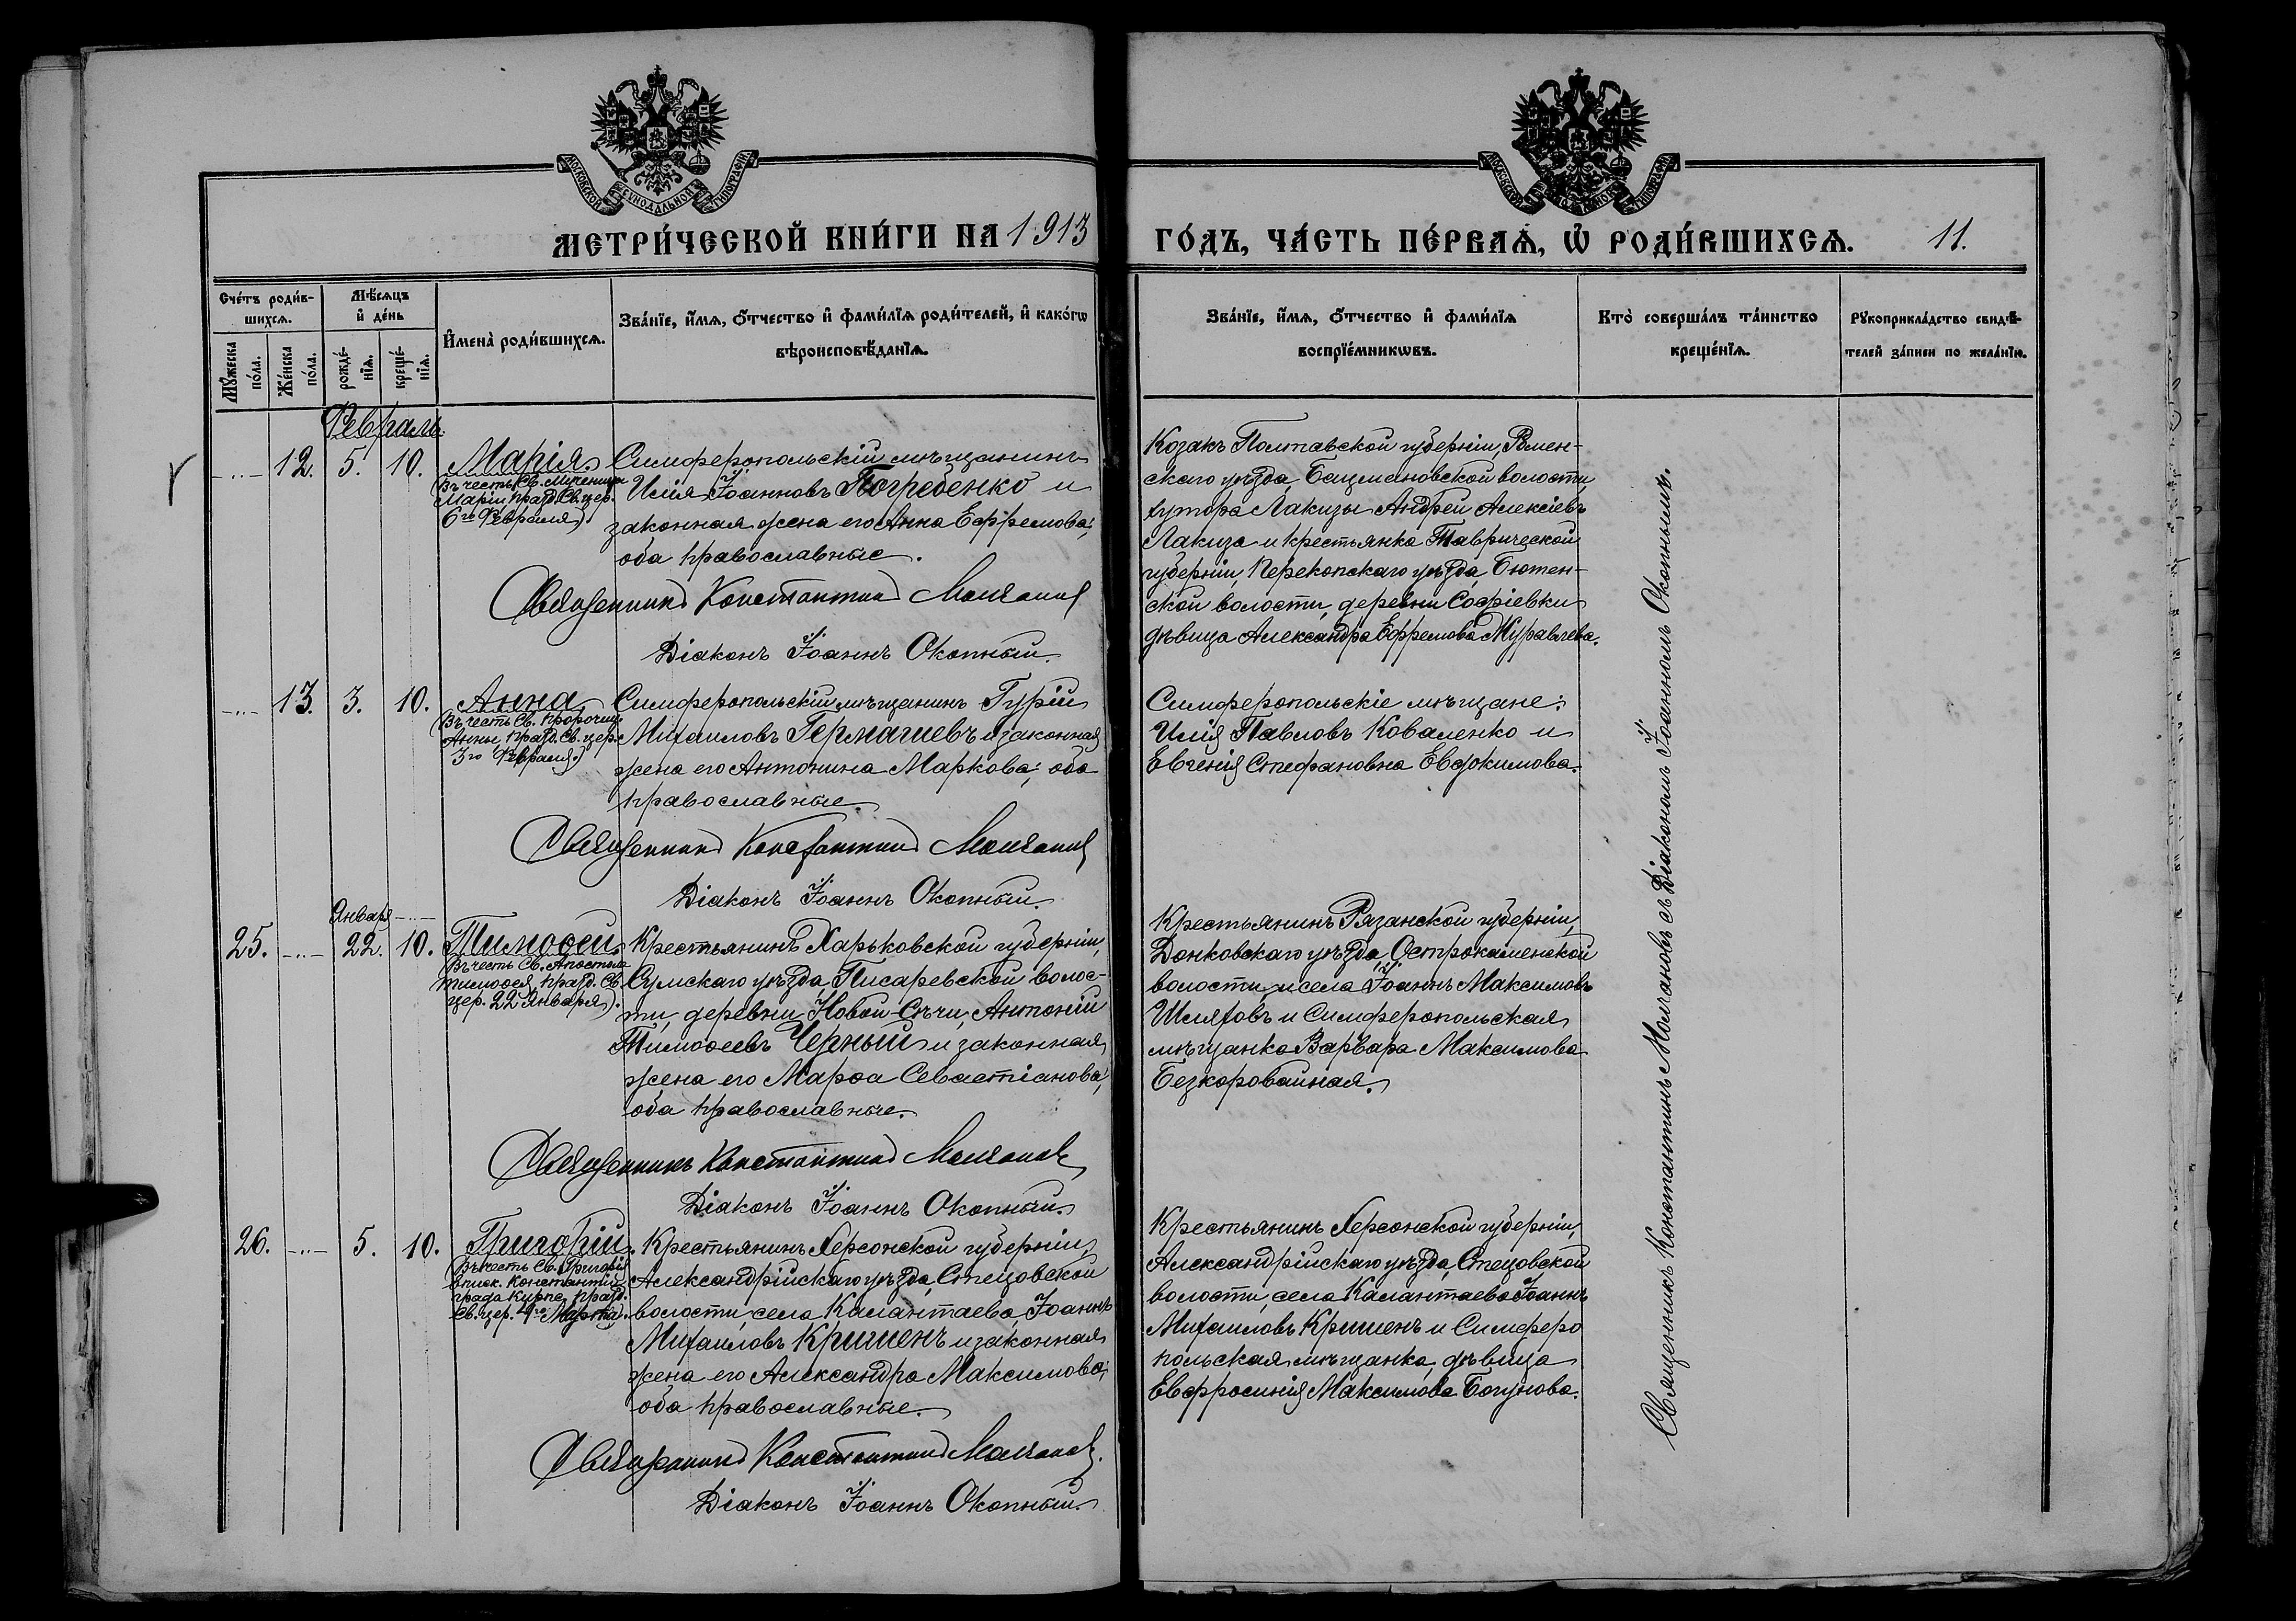 МОСКОВСКОЙ СѴНОДАЛЬНОЙ ТИПОГРАФІИ
МОСКОВСКОЙ СѴНОДАЛЬНОЙ ТИПОГРАФІИ
МЕТРИ́ЧЕСКОЙ КНИ́ГИ НА 1913
ГО́ДЪ, ЧА́СТЬ ПЕ́РВАѦ, Ѡ҆ РОДИ́ВШИХСѦ. 11.
Сче́тъ роди́в-
шихсѧ.
Мѣ́сѧцъ
и҆ де́нь
Мꙋ́жеска
по́ла.
Же́нска
по́ла.
рожде́-
нїѧ.
креще́-
нїѧ.
И҆мена̀ роди́вшихсѧ.
Зва́нїе, и҆́мѧ, ѻ҆́тчество и҆ фами́лїѧ роди́телей, и҆ како́гѡ
вѣроисповѣ́данїѧ.
Зва́нїе, и҆́мѧ, ѻ҆́тчество и҆ фами́лїѧ
воспрїе́мникѡвъ.
Кто̀ соверша́лъ та́инство
креще́нїѧ.
Рꙋкоприкла́дство свидѣ́-
телей за́писи по жела́нїю.
Февраль.
12. 5. 10. Марія.
Въ честь Св. Мученицы
Маріи, празд. Св. цер.
6го Февраля).
Симферопольскій мѣщанинъ
Илія Іоанновъ Погребенко и
законная жена его Анна Ефремова;
оба православные.
Священникъ Константинъ Молчановъ
Діаконъ Іоаннъ Окопный.
Козакъ Полтавской губерніи, Ромен-
скаго уѣзда, Бацмановской волости,
хутора Лакизы Андрей Алексіевъ
Лакиза и крестьянка Таврической
губерніи, Перекопскаго уѣзда, Бютен-
ской волости, деревни Софіевки
дѣвица Александра Ефремова Журавлева.
13. 3. 10. Анна.
Въ честь Св. пророчиц.
Анны, празд. Св. цер.
3го Февраля.)
Симферопольскій мѣщанинъ Гурій
Михаиловъ Гермашевъ и законная
жена его Антонина Маркова; оба
православные.
Священникъ Константинъ Молчановъ
Діаконъ Іоаннъ Окопный.
Симферопольскіе мѣщане:
Илія Павловъ Коваленко и
Евгенія Стефановна Евдокимова.
Января
25. 22. 10. Тимоѳей.
Въ честь Св. Апостола
Тимоѳея, празд. Св.
цер. 22 Января).
Крестьянинъ Харьковской губерніи,
Сумскаго уѣзда, Писаревской волос-
ти, деревни Новой-Сѣчи, Антоній
Тимоѳеевъ Черный и законная
жена его Марѳа Севастіанова;
оба православные.
Священникъ Константинъ Молчановъ
Діаконъ Іоаннъ Окопный.
Крестьянинъ Рязанской губерніи,
Донковскаго уѣзда, Острокаменской
волости, и села Іоаннъ Максимовъ
Шляховъ и Симферопольская
мѣщанка Варвара Максимова
Безкоровайная.
26. 5. 10. Григорій.
Въ честь Св. Григорія
еписк. Константіи
града Кипра, празд.
Св. цер. 4го Марта).
Крестьянинъ Херсонской губерніи,
Александрійскаго уѣзда, Стецовской
волости, села Калантаева, Іоаннъ
Михаиловъ Кришенъ и законная
жена его Александра Максимова;
оба православные.
Священникъ Константинъ Молчановъ.
Діаконъ Іоаннъ Окопный.
Крестьянинъ Херсонской губерніи,
Александрійскаго уѣзда, Стецовской
волости, села Калантаева Іоаннъ
Михаиловъ Кришенъ и Симферо
польская мѣщанка, дѣвица
Евфросинія Максимова Богунова.
Священникъ Константинъ Молчановъ съ Діакономъ Іоанномъ Окопнымъ.